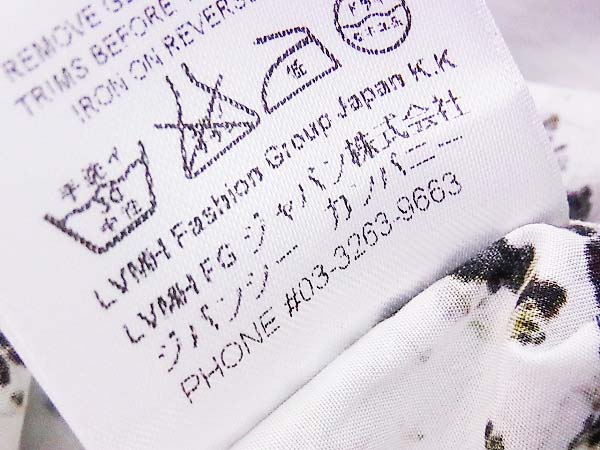 REMOVE
TRIMS BEFORE
IRON ON REVERSE
手洗イ
30
中性
エンソ
サラシ
低
ドライ
セキユ系
LVMH Fashion Group Japan K.K
LVMH FG ジャパン株式会社
ジバンシー カンパニー
PHONE #03-3263-9663